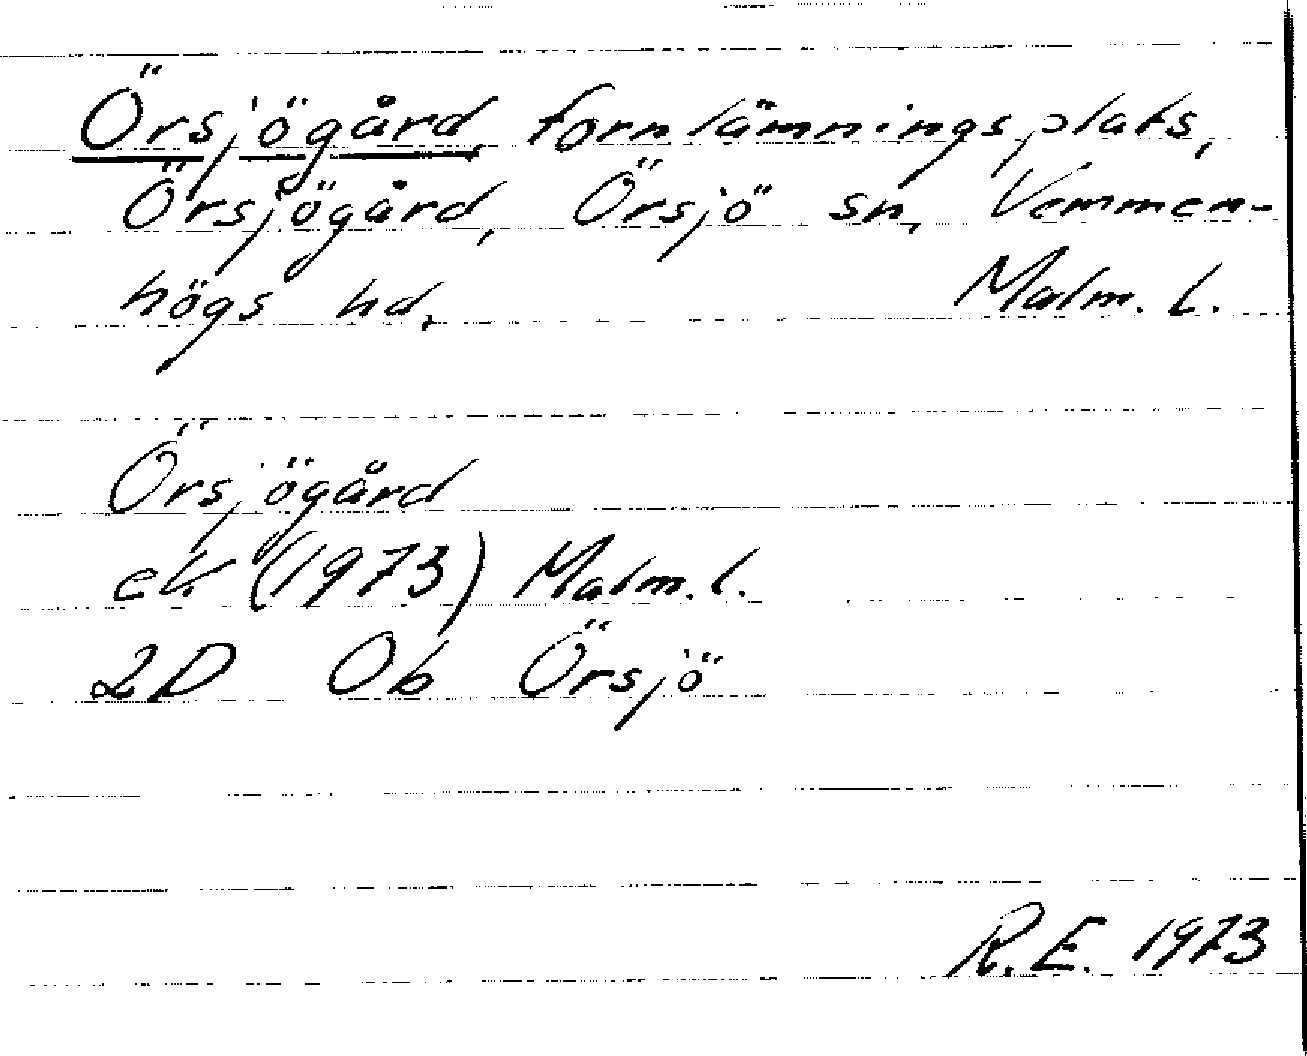 Örsjögård, fornlämningsplats,
Örsjögård, Örsjö sn, Vemmen-
högs hd. Malm. l.
Örsjögård
ek (1973) Malm. l.
2D Ob Örsjö
R.E. 1973